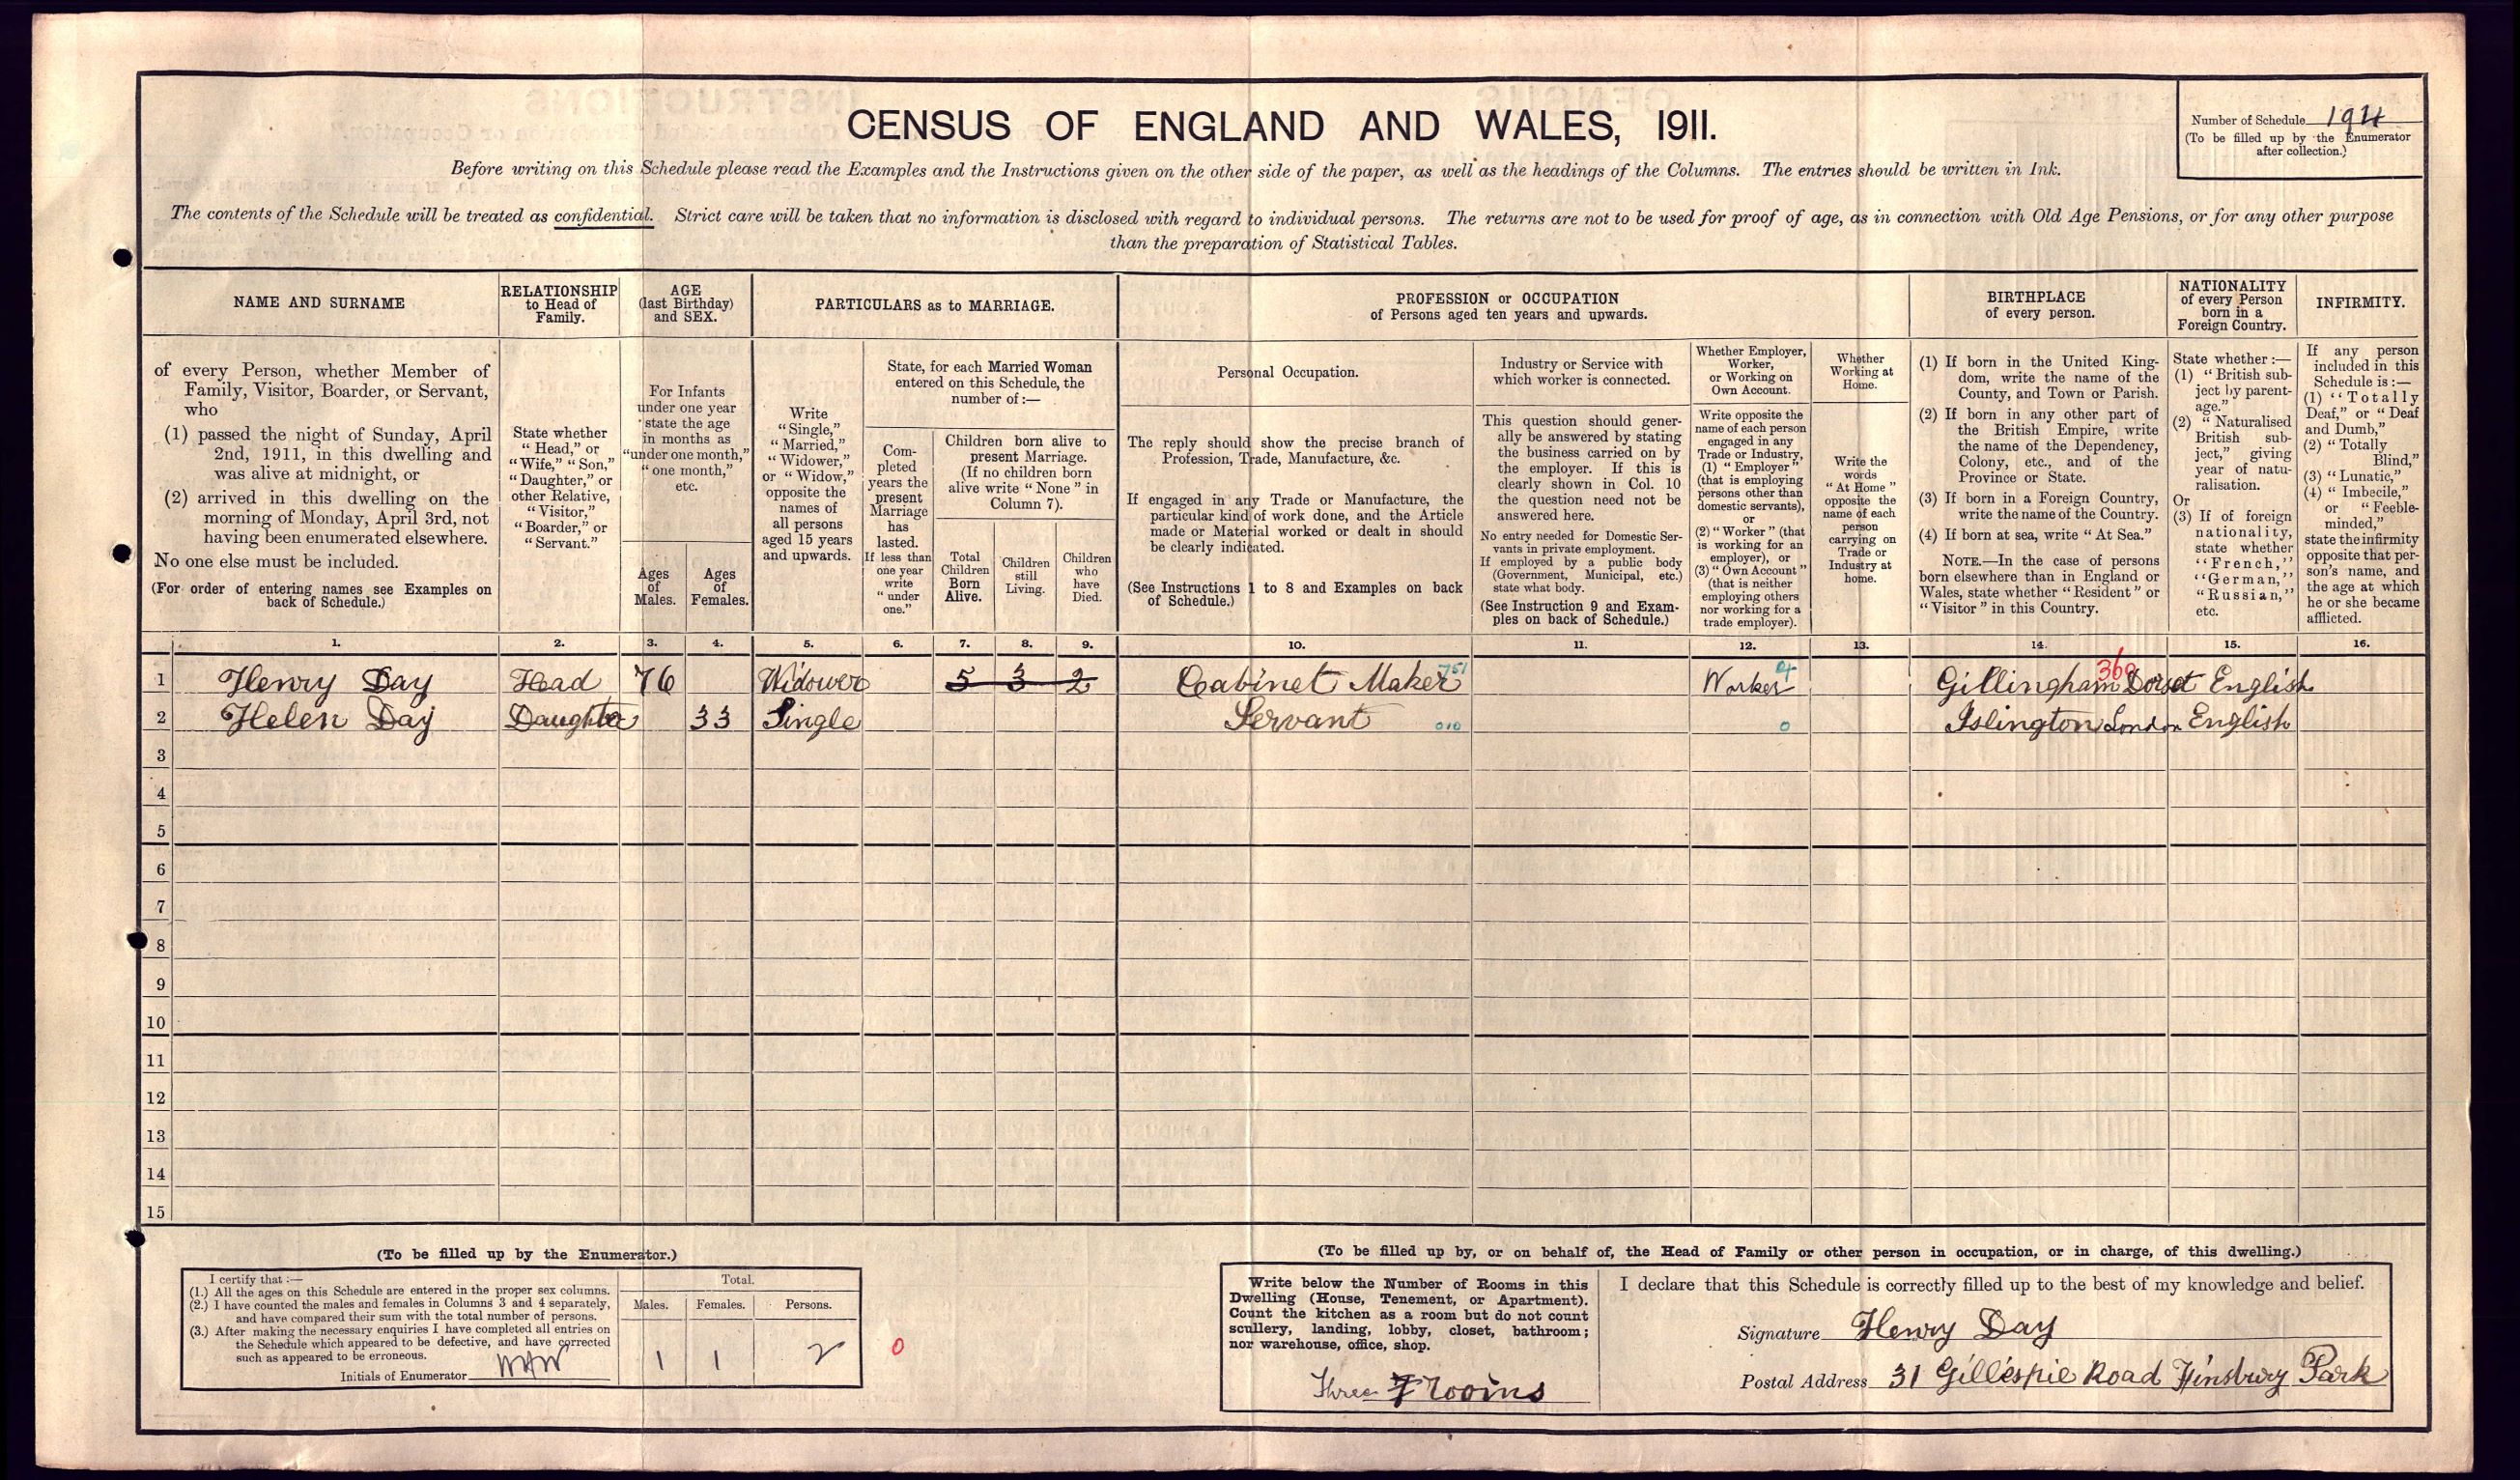 CENSUS OF ENGLAND AND WALES, 1911.
Number of Schedule 194
(To be filled up by the Enumerator
after collection.)
Before writing on this Schedule please read the Examples and the Instructions given on the other side of the paper, as well as the headings of the Columns. The entries should be written in Ink.
The contents of the Schedule will be treated as confidential. Strict care will be taken that no information is disclosed with regard to individual persons. The returns are not to be used for proof of age, as in connection with Old Age Pensions, or for any other purpose
than the preparation of Statistical Tables.
NAME AND SURNAME
of every Person, whether Member of
Family, Visitor, Boarder, or Servant,
who
(1) passed the night of Sunday, April
2nd, 1911, in this dwelling and
was alive at midnight, or
(2) arrived in this dwelling on the
morning of Monday, April 3rd, not
having been enumerated elsewhere.
No one else must be included.
(For order of entering names see Examples on
back of Schedule.)
RELATIONSHIP
to Head of
Family.
State whether
"Head," or
"Wife," "Son,"
"Daughter," or
other Relative,
"Visitor,"
"Boarder," or
"Servant."
AGE
(last Birthday)
and SEX.
For Infants
under one year
state the age
in months as
"under one month,"
"one month,"
etc.
Ages
of
Males.
Ages
of
Females.
PARTICULARS as to MARRIAGE.
Write
"Single,"
"Married,"
"Widower,"
or "Widow,"
opposite the
names of
all persons
aged 15 years
and upwards.
State, for each Married Woman
entered on this Schedule, the
number of :—
Com-
pleted
years the
present
Marriage
has
lasted.
If less than
one year
write
"under
one."
Children born alive to
present Marriage.
(If no children born
alive write "None" in
Column 7).
Total
Children
Born
Alive.
Children
still
Living.
Children
who
have
Died.
PROFESSION or OCCUPATION
of Persons aged ten years and upwards.
Personal Occupation.
The reply should show the precise branch of
Profession, Trade, Manufacture, &c.
If engaged in any Trade or Manufacture, the
particular kind of work done, and the Article
made or Material worked or dealt in should
be clearly indicated.
(See Instructions 1 to 8 and Examples on back
of Schedule.)
Industry or Service with
which worker is connected.
This question should gener-
ally be answered by stating
the business carried on by
the employer. If this is
clearly shown in Col. 10
the question need not be
answered here.
No entry needed for Domestic Ser-
vants in private employment.
If employed by a public body
(Government, Municipal, etc.)
state what body.
(See Instruction 9 and Exam-
ples on back of Schedule.)
Whether Employer,
Worker,
or Working on
Own Account.
Write opposite the
name of each person
engaged in any
Trade or Industry,
(1) "Employer"
(that is employing
persons other than
domestic servants),
or
(2) "Worker" (that
is working for an
employer), or
(3) "Own Account"
(that is neither
employing others
nor working for a
trade employer).
Whether
Working at
Home.
Write the
words
"At Home"
opposite the
name of each
person
carrying on
Trade or
Industry at
home.
BIRTHPLACE
of every person.
(1) If born in the United King-
dom, write the name of the
County, and Town or Parish.
(2) If born in any other part of
the British Empire, write
the name of the Dependency,
Colony, etc., and of the
Province or State.
(3) If born in a Foreign Country,
write the name of the Country.
(4) If born at sea, write "At Sea."
NOTE.—In the case of persons
born elsewhere than in England or
Wales, state whether "Resident" or
"Visitor" in this Country.
NATIONALITY
of every Person
born in a
Foreign Country.
State whether :—
(1) "British sub-
ject by parent-
age."
(2) "Naturalised
British sub-
ject," giving
year of natu-
ralisation.
Or
(3) If of foreign
nationality,
state whether
"French,"
"German,"
"Russian,"
etc.
INFIRMITY.
If any person
included in this
Schedule is :—
(1) "Totally
Deaf," or "Deaf
and Dumb,"
(2) "Totally
Blind,"
(3) "Lunatic,"
(4) "Imbecile,"
or "Feeble-
minded,"
state the infirmity
opposite that per-
son's name, and
the age at which
he or she became
afflicted.
1. 2. 3. 4. 5. 6. 7. 8. 9. 10. 11. 12. 13. 14. 15. 16.
1 Henry Day Head 76 Widower 5 3 2 Cabinet Maker 751 Worker 4 Gillingham Dorset 360 English
2 Helen Day Daughter 33 Single Servant 010 0 Islington London English
3
4
5
6
7
8
9
10
11
12
13
14
15
(To be filled up by the Enumerator.)
I certify that :—
(1.) All the ages on this Schedule are entered in the proper sex columns.
(2.) I have counted the males and females in Columns 3 and 4 separately,
and have compared their sum with the total number of persons.
(3.) After making the necessary enquiries I have completed all entries on
the Schedule which appeared to be defective, and have corrected
such as appeared to be erroneous.
Initials of Enumerator
Total.
Males. Females. Persons.
1 1 2
0
(To be filled up by, or on behalf of, the Head of Family or other person in occupation, or in charge, of this dwelling.)
Write below the Number of Rooms in this
Dwelling (House, Tenement, or Apartment).
Count the kitchen as a room but do not count
scullery, landing, lobby, closet, bathroom;
nor warehouse, office, shop.
Three rooms
I declare that this Schedule is correctly filled up to the best of my knowledge and belief.
Signature Henry Day
Postal Address 31 Gillespie Road Finsbury Park